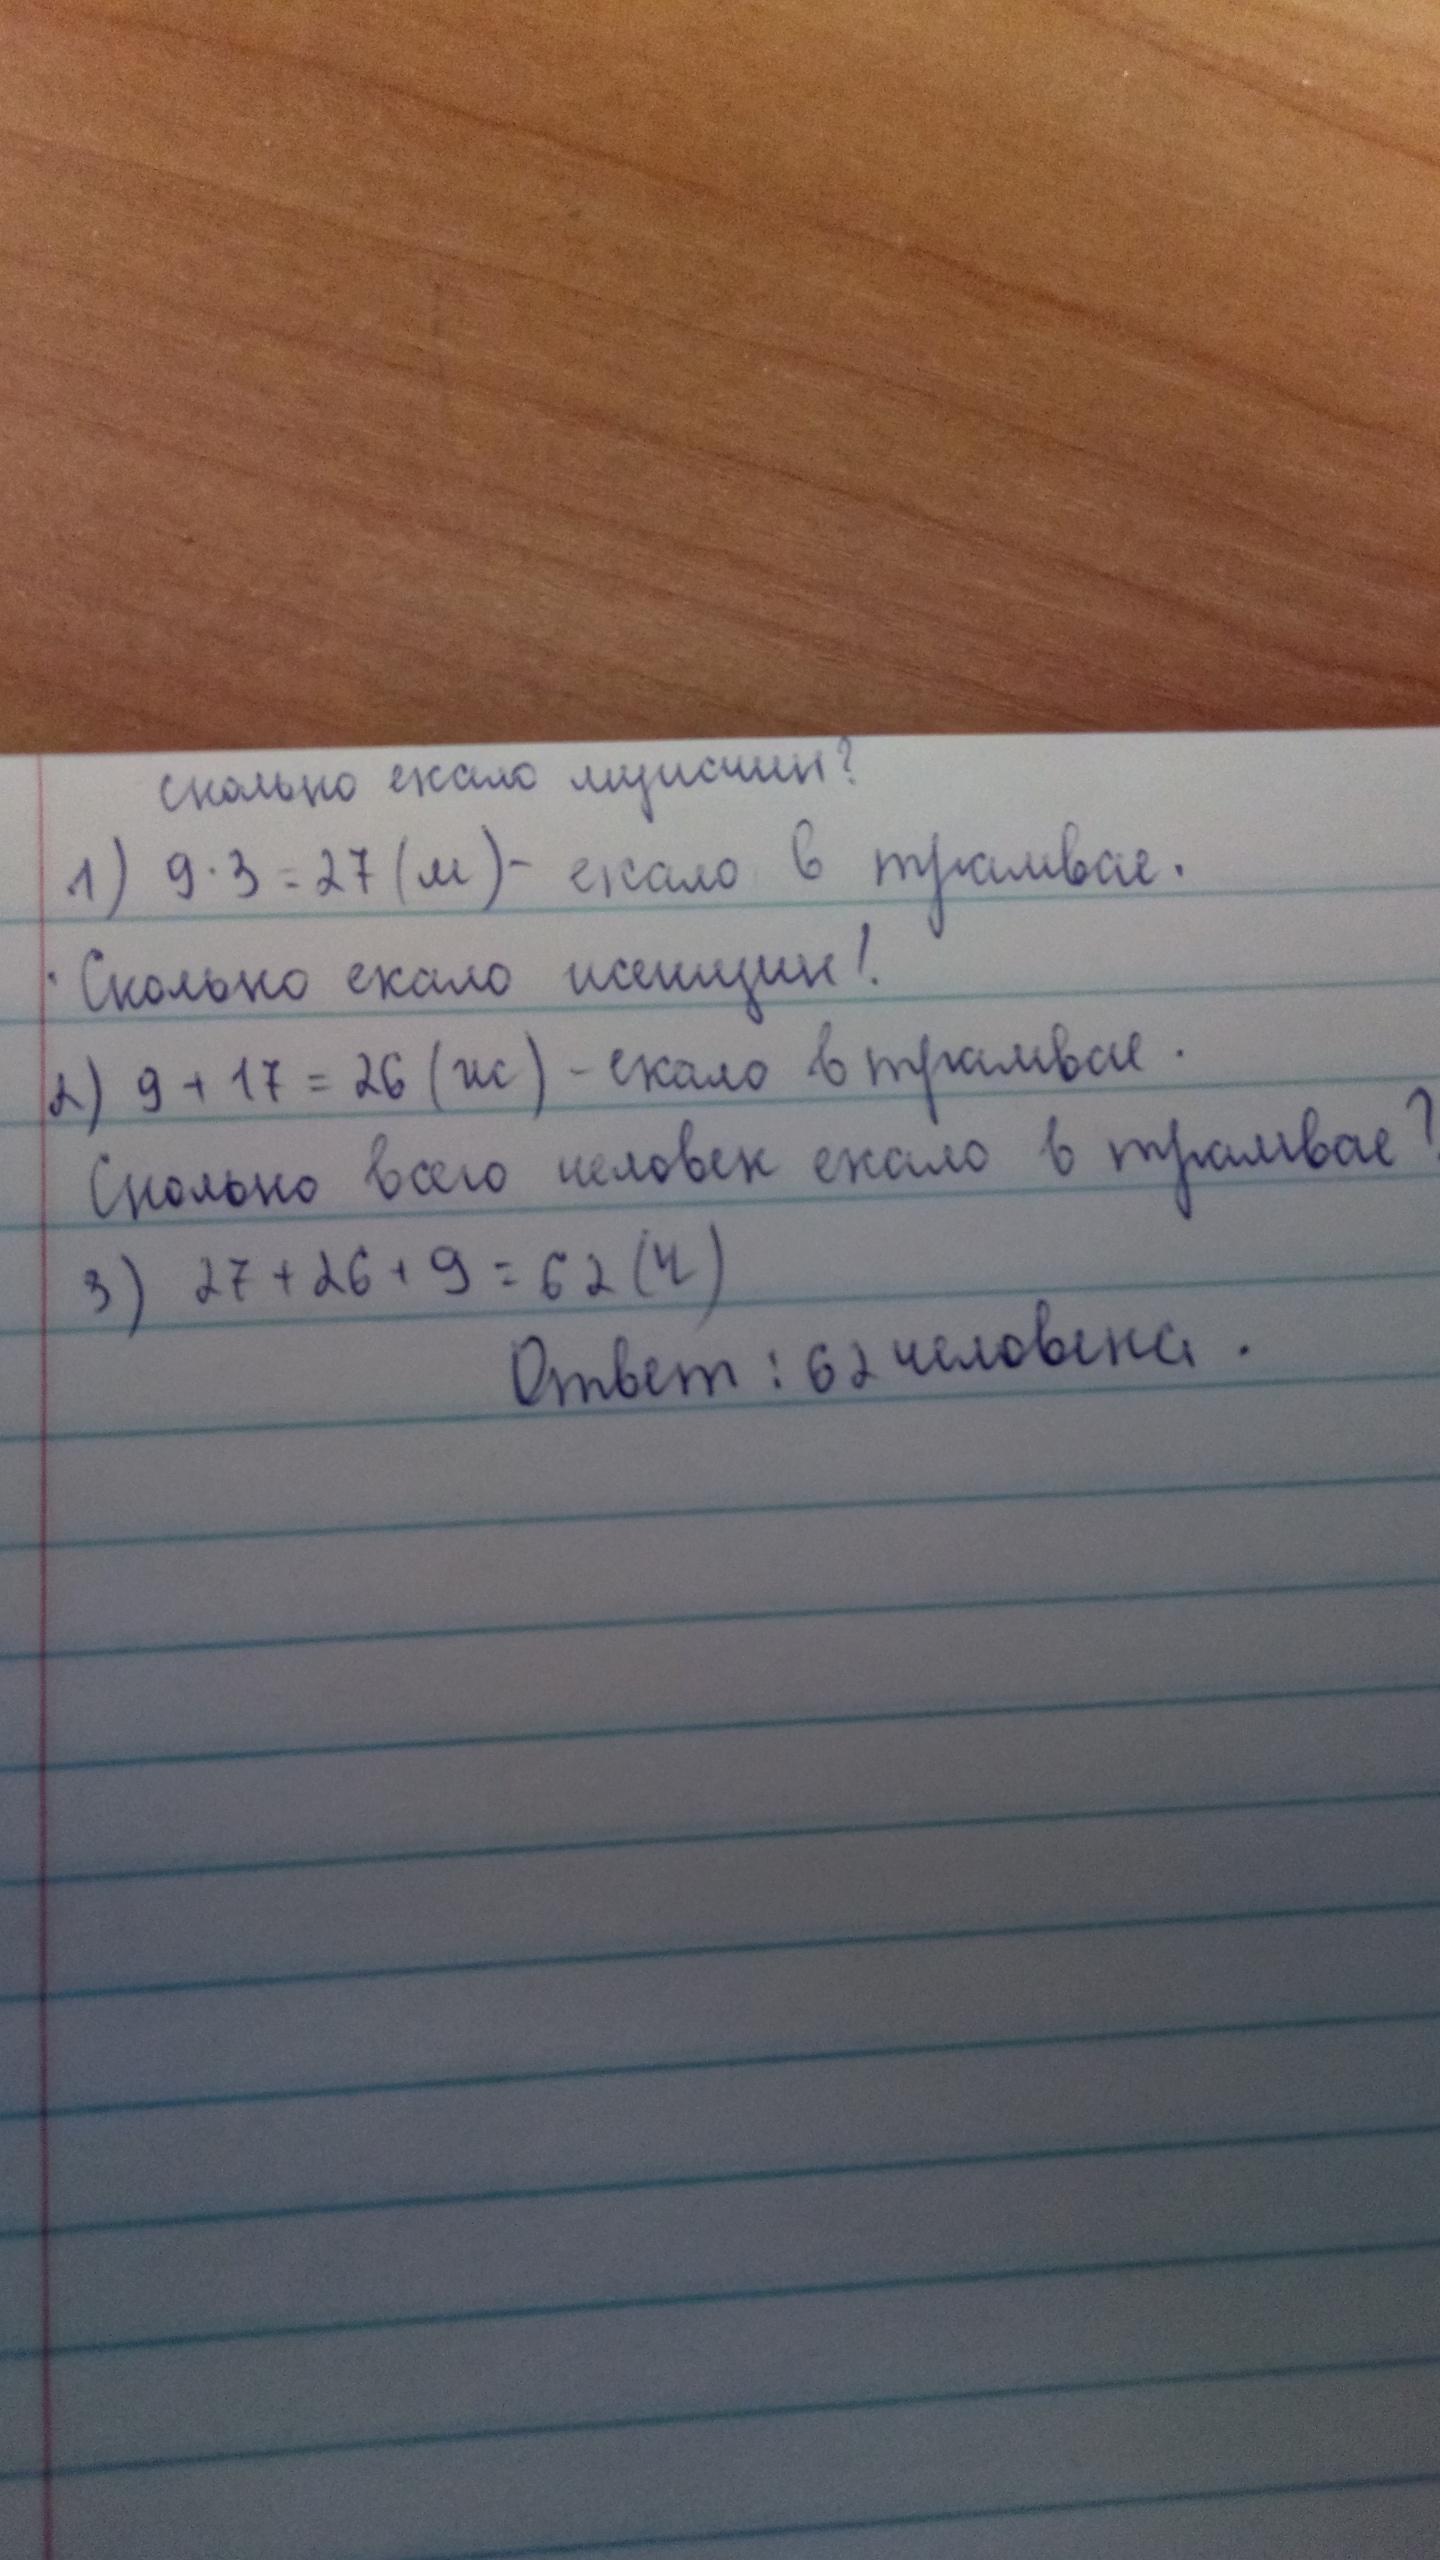 сколько ехало мужчин?
1) 9·3=27(м)- ехало в трамвае.
Сколько ехало женщин?
2) 9+17=26(ж) - ехало в трамвае.
Сколько всего человек ехало в трамвае?
3) 27+26+9=62(ч)
Ответ: 62 человека.